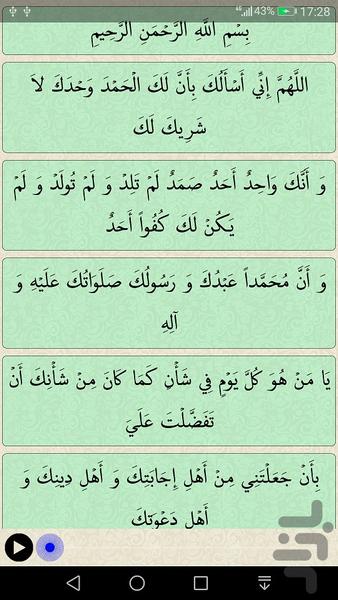 43% 17:28
بِسْمِ اللَّهِ الرَّحْمَنِ الرَّحِيمِ
اللَّهُمَّ إِنِّي أَسْأَلُكَ بِأَنَّ لَكَ الْحَمْدَ وَحْدَكَ لاَ
شَرِيكَ لَكَ
وَ أَنَّكَ وَاحِدٌ أَحَدٌ صَمَدٌ لَمْ تَلِدْ وَ لَمْ تُولَدْ وَ لَمْ
يَكُنْ لَكَ كُفُواً أَحَدٌ
وَ أَنَّ مُحَمَّداً عَبْدُكَ وَ رَسُولُكَ صَلَوَاتُكَ عَلَيْهِ وَ
آلِهِ
يَا مَنْ هُوَ كُلَّ يَوْمٍ فِي شَأْنٍ كَمَا كَانَ مِنْ شَأْنِكَ أَنْ
تَفَضَّلْتَ عَلَيَ
بِأَنْ جَعَلْتَنِي مِنْ أَهْلِ إِجَابَتِكَ وَ أَهْلِ دِينِكَ وَ
أَهْلِ دَعْوَتِكَ